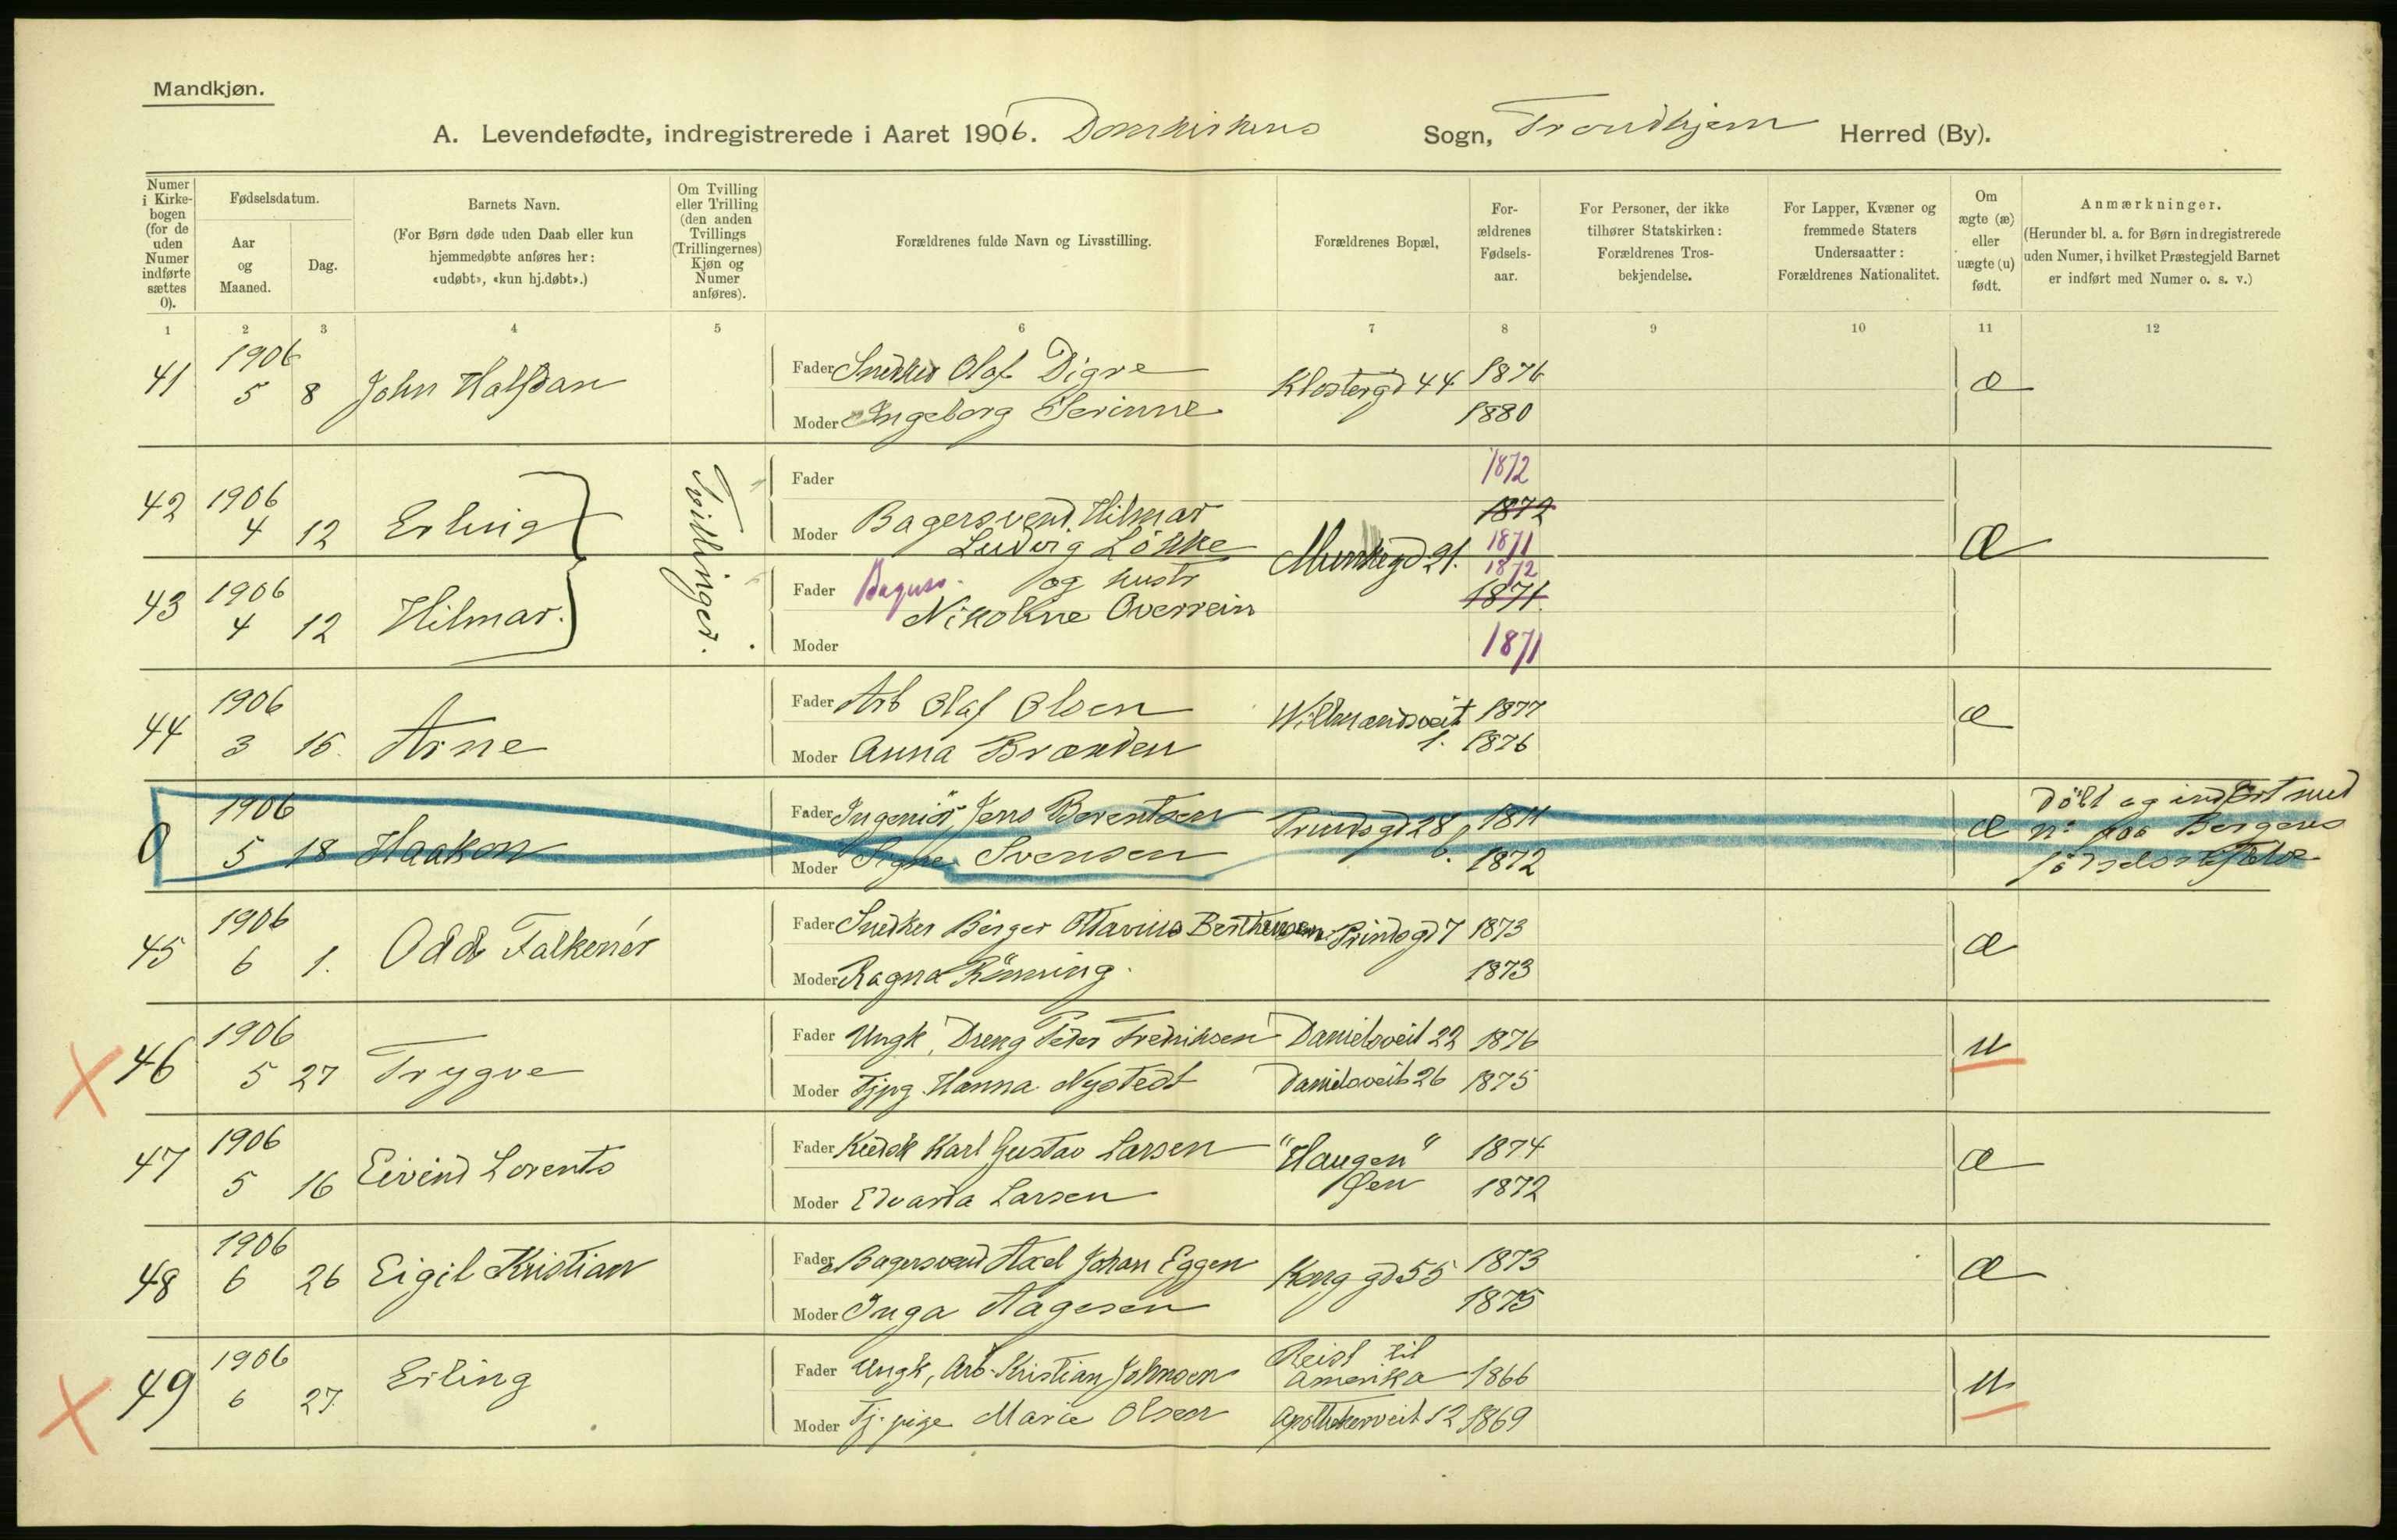 Mandkjøn.
A. Levendefødte, indregistrerede i Aaret 1906. Domkirkens Sogn, Trondhjem Herred (By).
Numer i Kirkebogen (for de uden Numer indførte sættes 0).
Fødselsdatum.
Aar og Maaned.
Dag.
Barnets Navn.
(For Børn døde uden Daab eller kun hjemmedøbte anføres her: «udøbt», «kun hj.døbt».)
Om Tvilling eller Trilling (den anden Tvillings (Trillingernes) Kjøn og Numer anføres).
Forældrenes fulde Navn og Livsstilling.
Forældrenes Bopæl,
Forældrenes Fødselsaar.
For Personer, der ikke tilhører Statskirken: Forældrenes Trosbekjendelse.
For Lapper, Kvæner og fremmede Staters Undersaatter: Forældrenes Nationalitet.
Om ægte (æ) eller uægte (u) født.
Anmærkninger.
(Herunder bl. a. for Børn indregistrerede uden Numer, i hvilket Præstegjeld Barnet er indført med Numer o. s. v.)
1 2 3 4 5 6 7 8 9 10 11 12
41 1906 5 8 John Halfdan Fader Snedker Olaf Digre Klostergd 44 1876 æ
Moder Ingeborg Serinne 1880
42 1906 4 12 Erling Tvillinger. Fader 1872
Moder Bagersvend Hilmar 1872
Ludvig Løkke Munkegd 21. 1871 Æ
43 1906 4 12 Hilmar. Fader Bagersv. og hustr 1872
Nikoline Overrein 1871
Moder 1871
44 1906 3 15. Arne Fader Arb Olaf Olsen Wilmandsveit 1. 1877 æ
Moder Anna Brænden 1876
0 1906 5 18 Haakon Fader Ingeniør Jens Berentsen 28 1871 æ Døbt og indført med
Moder Signe Svensen 1872 Bergens
45 1906 6 1. Odd Falkenér Fader Snedker Birger Ottarius Berthensen Prindsgd 7 1873 æ
Moder Ragna Rønning. 1873
46 1906 5 27 Trygve Fader Ungk, Dreng Peter Fredriksen Danielsveit 22 1876 u
Moder Tjpg. Hanna Nystedt Danielsveit 26 1875
47 1906 5 16 Eivind Lorents Fader Kudsk Karl Gustav Larsen "Haugen" 1874 æ
Moder Edvarda Larsen Øen 1872
48 1906 6 26 Eigil Kristian Fader Bagersvend Axel Johan Eggen Kong gd 55 1873 æ
Moder Inga Aagesen 1875
49 1906 6 27. Erling Fader Ungk, Arb. Kristian Johnsen Reist til Amerika 1866 u
Moder Tj. pige Marie Olsen Apothekerveit 12 1869